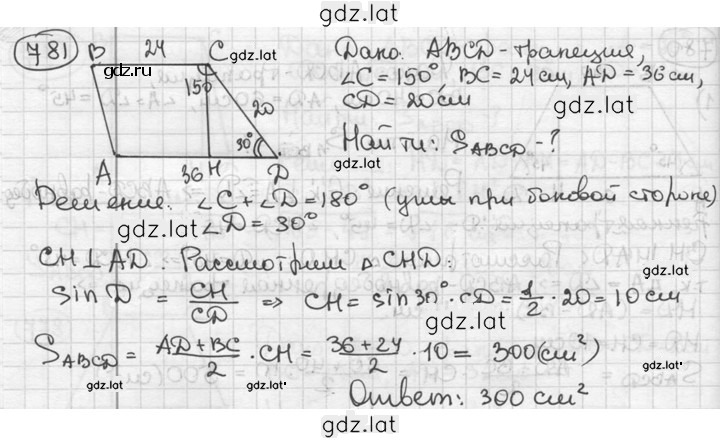 gdz.lat
781
B 24 C gdz.lat
gdz.lat
150
20
30°
A 36 H D
Дано: ABCD-трапеция,
∠C=150°, BC=24см, AD=36см,
CD=20см
gdz.lat
Найти: S_ABCD-?
Решение: ∠C+∠D=180° (углы при боковой стороне)
gdz.lat ∠D=30°
CH⊥AD. Рассмотрим △CHD:
sin D = CH/CD ⇒ CH = sin30°·CD = 1/2·20=10см
gdz.lat
gdz.lat
S_ABCD = (AD+BC)/2·CH = (36+24)/2·10 = 300(см²)
gdz.lat gdz.lat gdz.lat
Ответ: 300 см²
gdz.lat